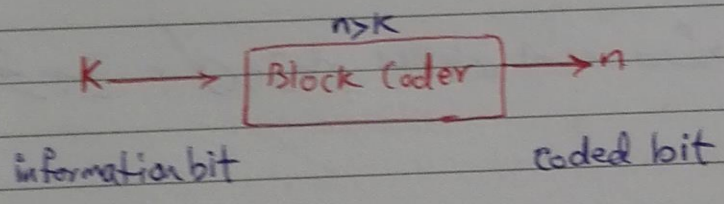 n>K
K Block Coder n
information bit coded bit